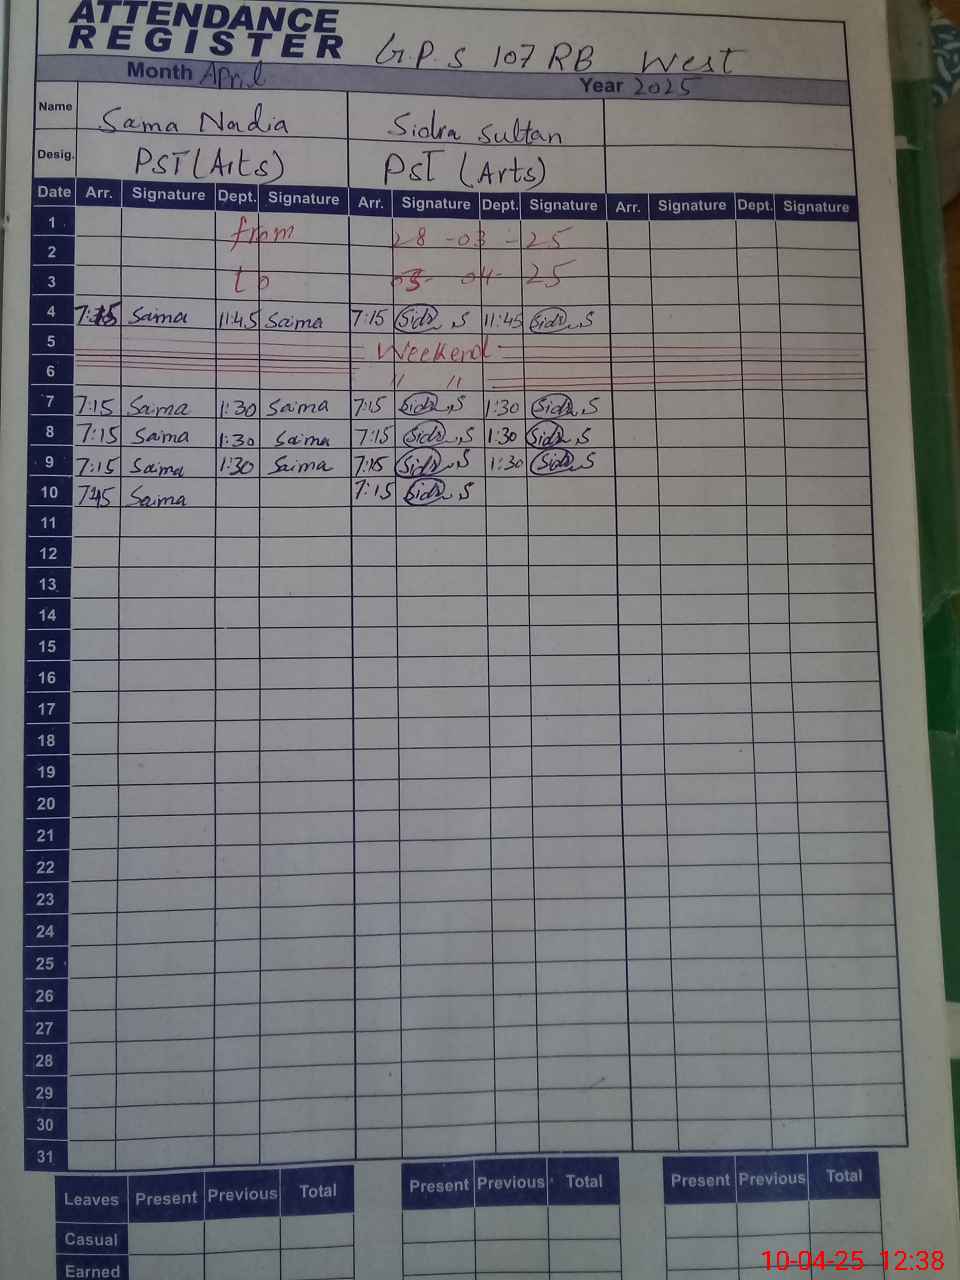 ATTENDANCE
REGISTER G.P.S 107 RB West
Month April Year 2025
Name Sama Nadia Sidra Sultan
Desig. PST (Arts) PST (Arts)
Date Arr. Signature Dept. Signature Arr. Signature Dept. Signature Arr. Signature Dept. Signature
1 from 28-03-25
2
3 to 03-04-25
4 7:15 Saima 11:45 Saima 7:15 Sidra S 11:45 Sidra S
5 Weekend
6 " "
7 7:15 Saima 1:30 Saima 7:15 Sidra S 1:30 Sidra S
8 7:15 Saima 1:30 Saima 7:15 Sidra S 1:30 Sidra S
9 7:15 Saima 1:30 Saima 7:15 Sidra S 1:30 Sidra S
10 7:45 Saima 7:15 Sidra S
11
12
13
14
15
16
17
18
19
20
21
22
23
24
25
26
27
28
29
30
31
Leaves Present Previous Total Present Previous Total Present Previous Total
Casual
Earned
10-04-25 12:38